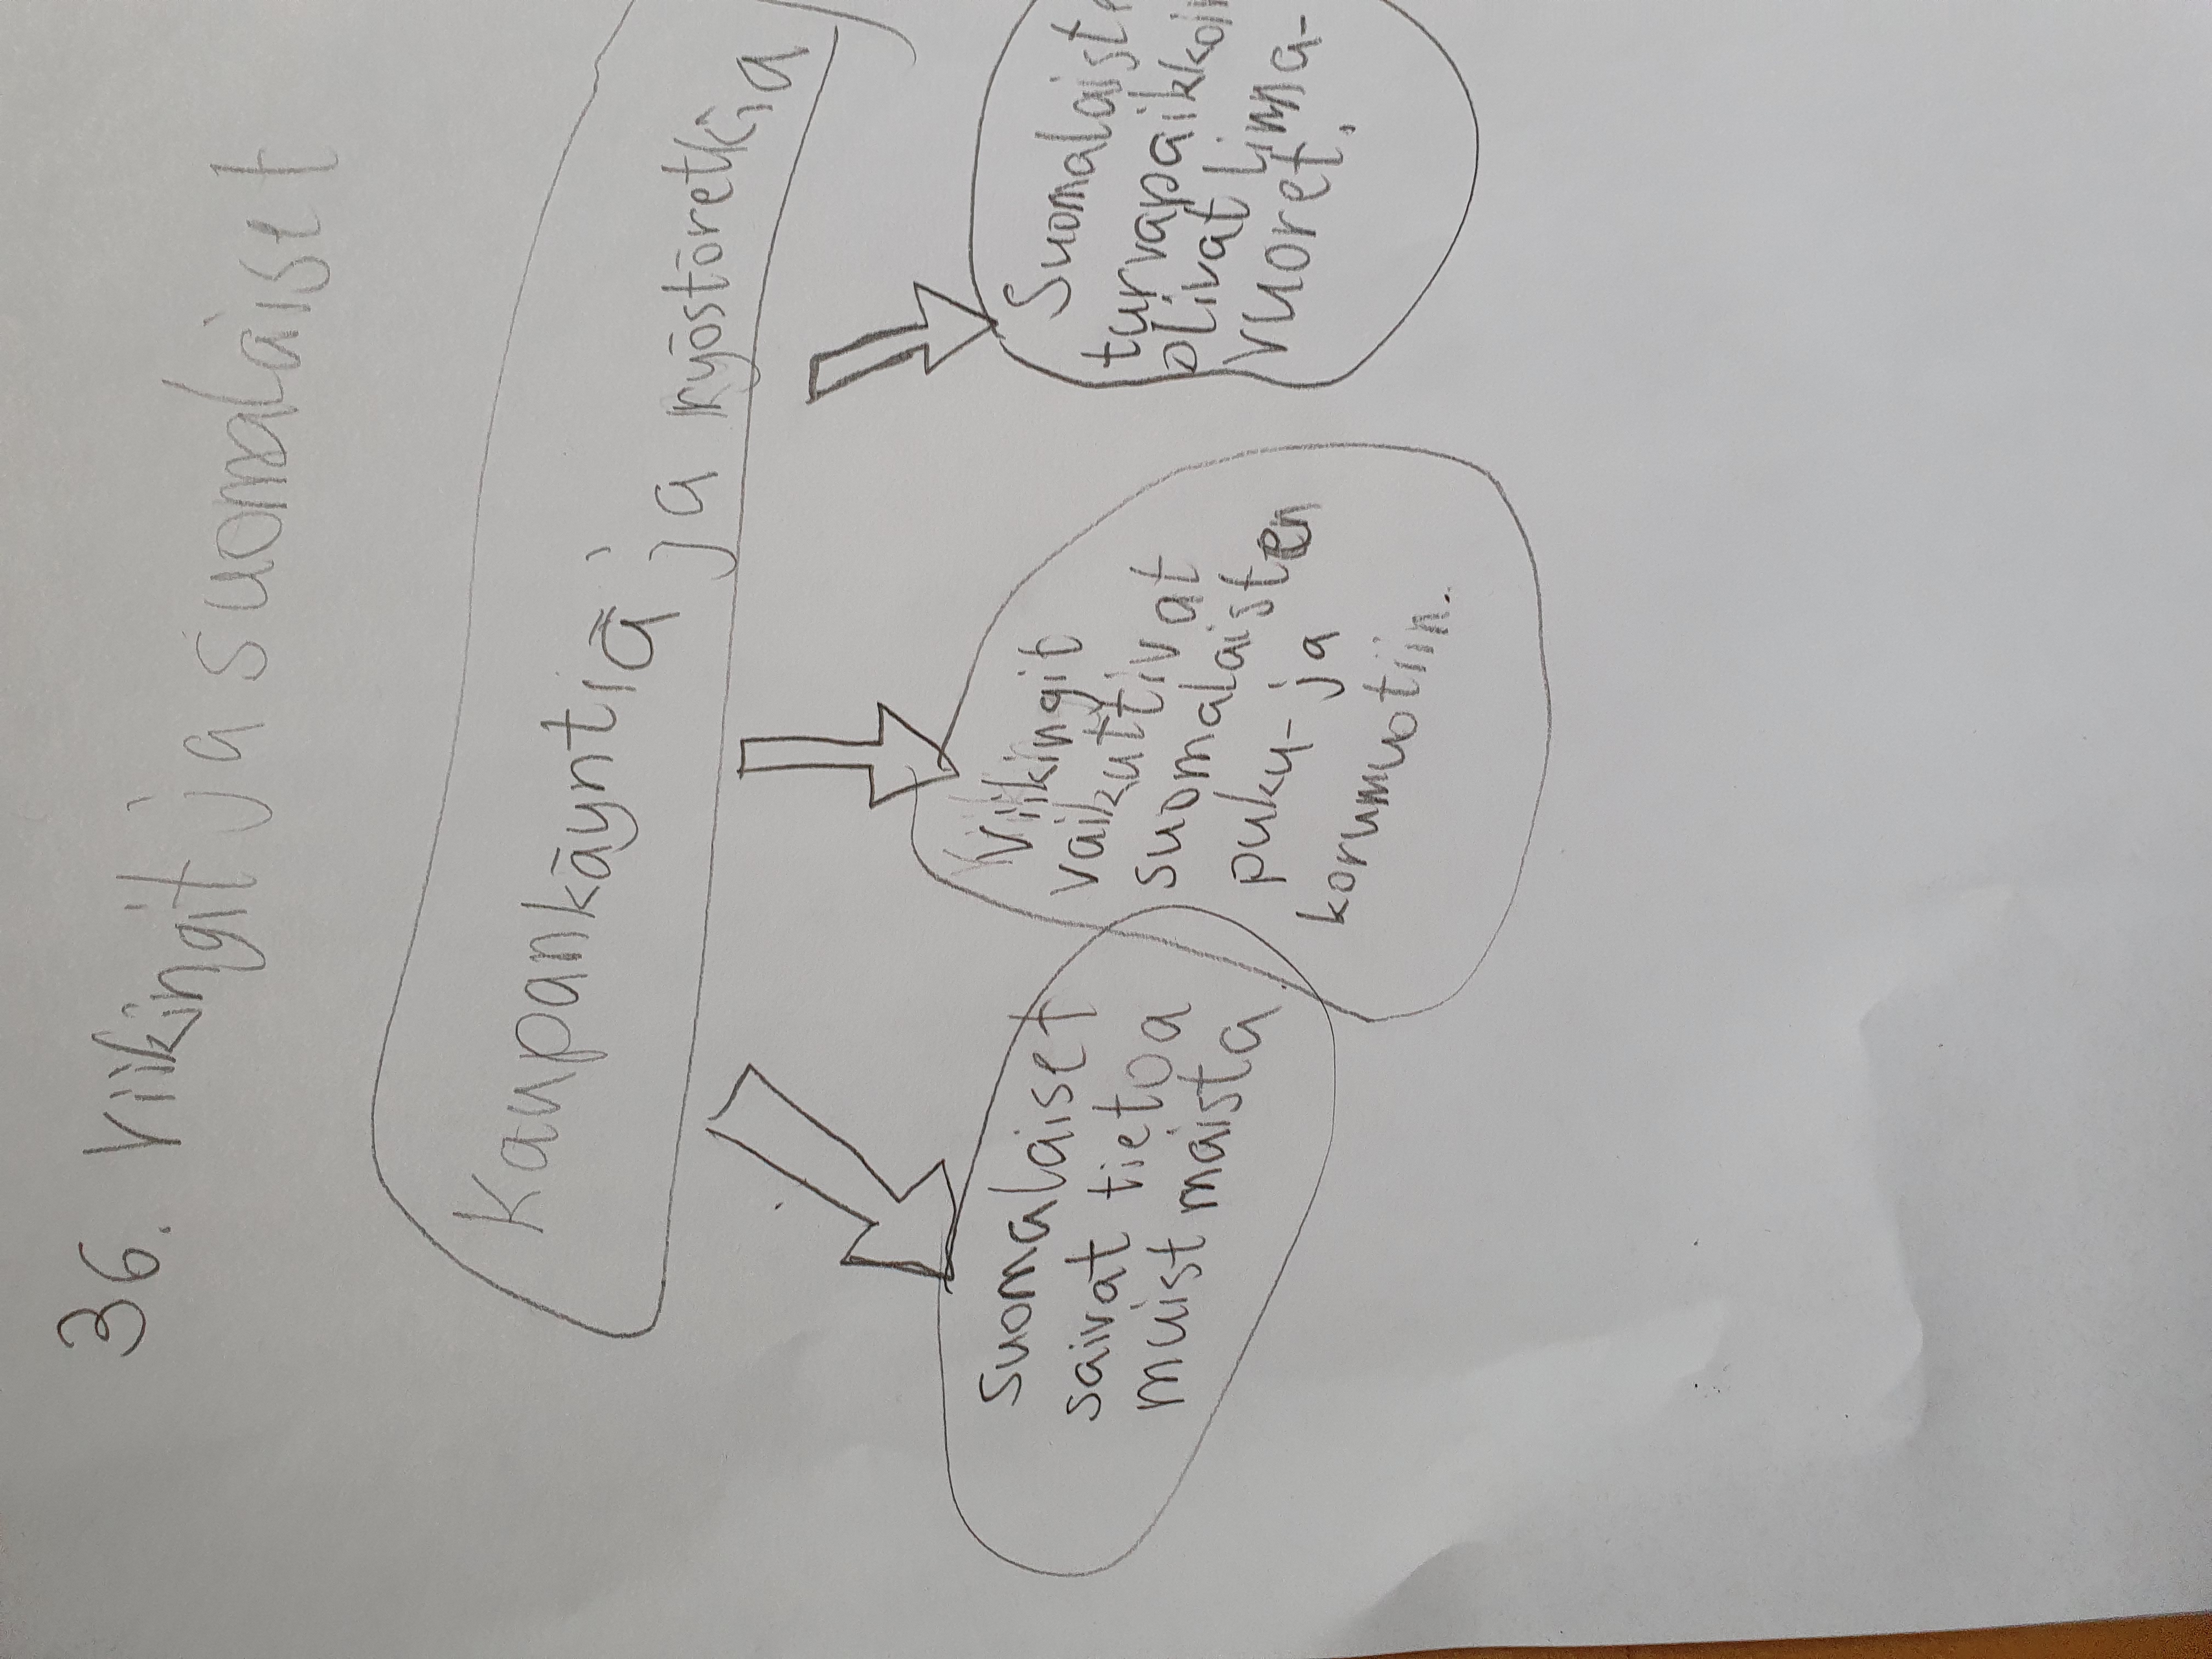 36. Viikingit ja suomalaiset
Kaupankäyntiä ja ryöstöretkiä
Suomalaiset
saivat tietoa
muist maista
Viikingit
vaikuttivat
suomalaisten
puku- ja
korumuotiin.
Suomalaist
turvapaikkoi
olivat linna-
vuoret.